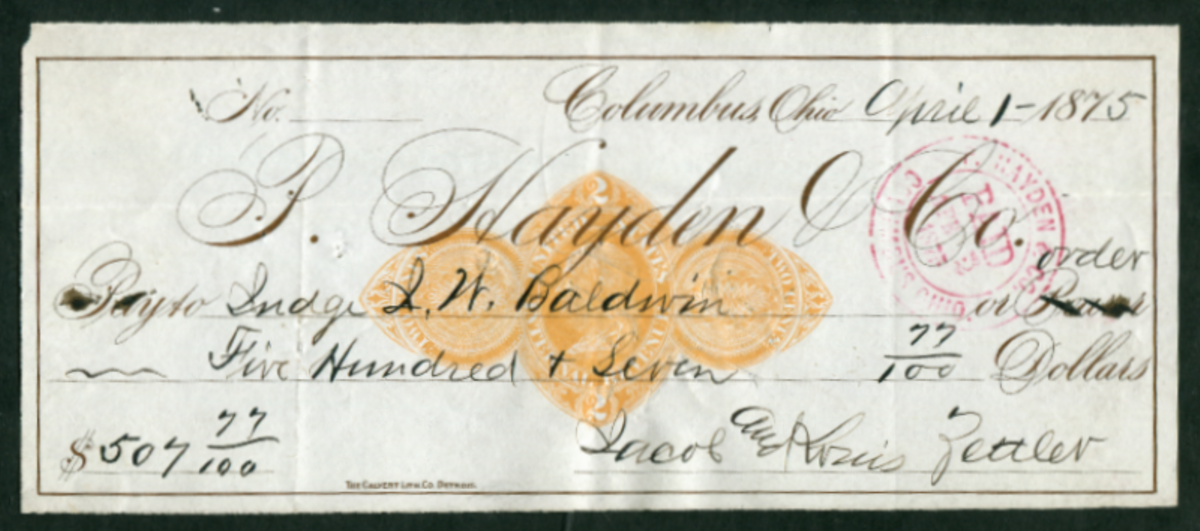 No. Columbus, Ohio April 1 - 1875
P. Hayden & Co.
HAYDEN & CO
PAID
COLUMBUS OHIO
2
order
Pay to Judge J. W. Baldwin or Bearer
Five Hundred + Seven 77/100 Dollars
2
$ 507 77/100
Jacob and Louis Zettler
The Calvert Lith. Co. Detroit.